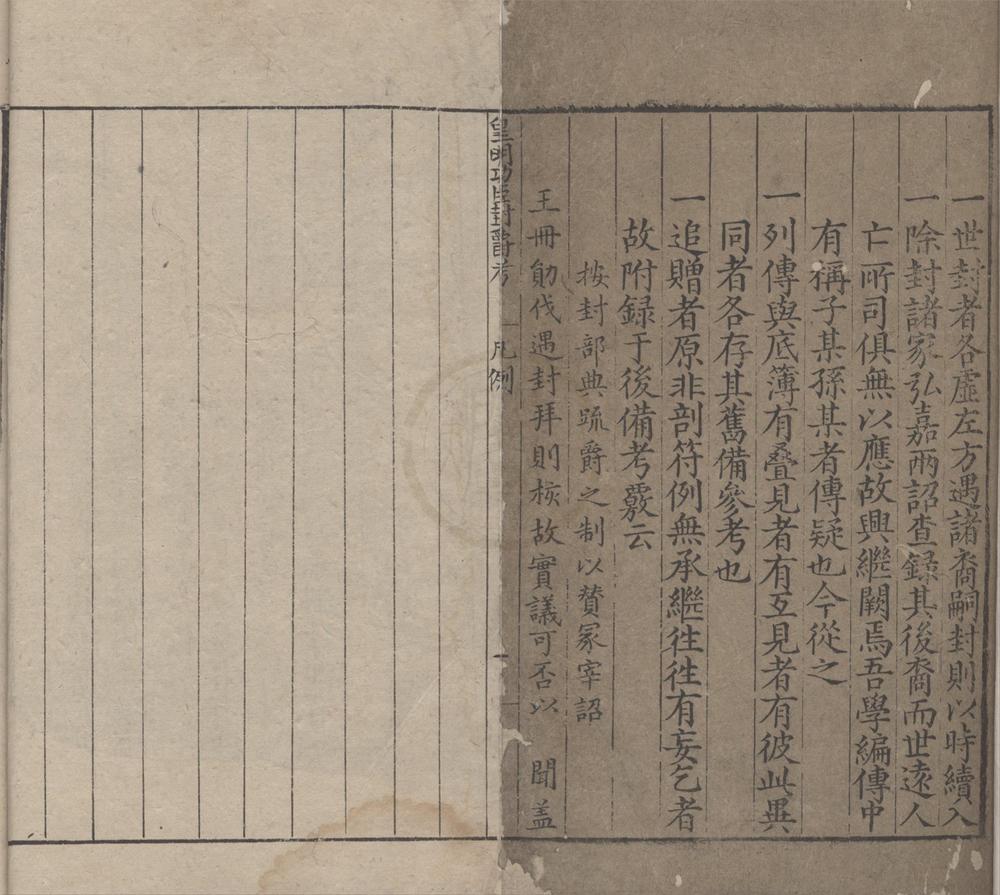 一世封者各虛左方遇諸裔嗣封則以時續入
一除封諸家弘嘉兩詔查錄其後裔而世遠人
亡所司俱無以應故興繼闕焉吾學編傳中
有稱子某孫某者傳疑也今從之
一列傳與底簿有疊見者有互見者有彼此異
同者各存其舊備參考也
一追贈者原非剖符例無承繼徃徃有妄乞者
故附録于後備考覈云
按封部典疏爵之制以贊冢宰詔
王冊勛伐遇封拜則核故實議可否以　聞盖
皇明功臣封爵考　凡例　一